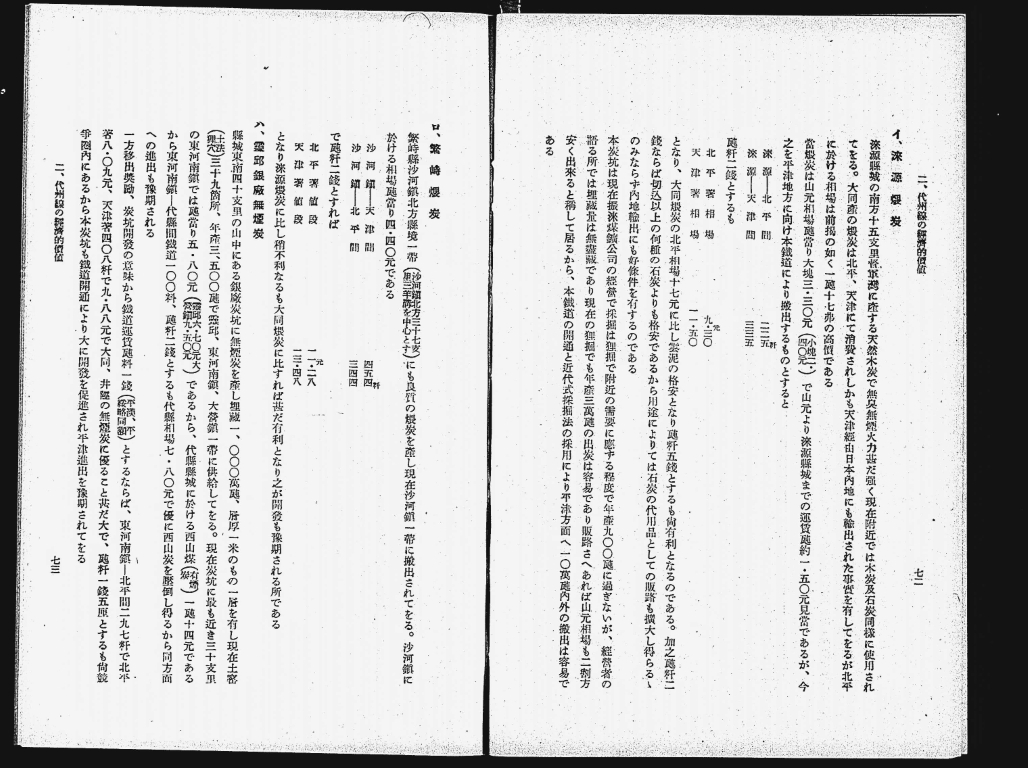 二、代州線の經濟的價值
七二
イ、淶源煤炭
淶源縣城の南方十五支里に產する天然木炭で無臭無煙火力甚だ强く現在附近では木炭及石炭同樣に使用され
てをる。大同產の煤炭は北平、天津にて消費されしかも天津經由日本內地にも輸出された事實を有してをるが北平
に於ける相場は前揭の如く一瓲十七弗の高價である
當煤炭は山元相場瓲當り大塊三・三〇元(小塊二・四〇元)で山元より淶源縣城までの運賃瓲約一・五〇元見當であるが、今
之を平津地方に向け本鐵道により搬出するものとすると
淶源――北平間 二二五粁
淶源――天津間 三三五
瓲粁二錢とするも
北平著相場 九・三〇元
天津著相場 一一・五〇
となり、大同煤炭の北平相場十七元に比し雲泥の格安となり瓲粁五錢とするも尙有利となるのである。加之瓲粁二
錢ならば切込以上の何種の石炭よりも格安であるから用途によりては石炭の代用品としての販路も擴大し得らるゝ
のみならず內地輸出にも好條件を有するのである
本炭坑は現在振淶煤鑛公司の經營で採掘は狸掘で附近の需要に應ずる程度で年產九〇〇瓲に過ぎないが、經營者の
語る所では埋藏量は無盡藏であり現在の狸掘でも年產三萬瓲の出炭は容易であり販路さへあれば山元相場も二割方
安く出來ると稱して居るから、本鐵道の開通と近代式採掘法の採用により平津方面へ一〇萬瓲內外の搬出は容易で
ある
ロ、繁峙煤炭
繁峙縣沙河鎭北方縣境一帶(沙河鎭北方三十七支里を中心とす)にも良質の煤炭を產し現在沙河鎭一帶に搬出されてをる。沙河鎭に
於ける相場瓲當り四・四〇元である
沙河鎭――天津間 四五四粁
沙河鎭――北平間 三四四
で瓲粁二錢とすれば
北平著値段 一一・二八元
天津著値段 一三・四八
となり淶源煤炭に比し稍不利なるも大同煤炭に比すれば甚だ有利となり之が開發も豫期される所である
ハ、靈邱銀廠無煙炭
縣城東南四十支里の山中にある銀廠炭坑に無煙炭を產し埋藏一、〇〇〇萬瓲、層厚一米のもの一層を有し現在土窰
(土法堅穴)三十九箇所、年產三、五〇〇瓲で靈邱、東河南鎭、大營鎭一帶に供給してをる。現在炭坑に最も近き三十支里
の東河南鎭では瓲當り五・八〇元(靈邱六・七〇元大營鎭九・五〇元)であるから、代縣縣城に於ける西山煤(有煙炭)一瓲十四元である
から東河南鎭―代縣間鐵道一〇〇粁、瓲粁二錢とするも代縣相場七・八〇元で優に西山炭を壓倒し得るから同方面
への進出も豫期される
一方移出奬勵、炭坑開發の意味から鐵道運賃瓲粁一錢(平漢、平綏略同額)とするならば、東河南鎭―北平間二九七粁で北平
著八・〇九元、天津著四〇八粁で九・八八元で大同、井陘の無煙炭に優ること甚だ大で、瓲粁一錢五厘とするも尙競
爭圈內にあるから本炭坑も鐵道開通により大に開發を促進され平津進出を豫期されてをる
二、代州線の經濟的價值
七三